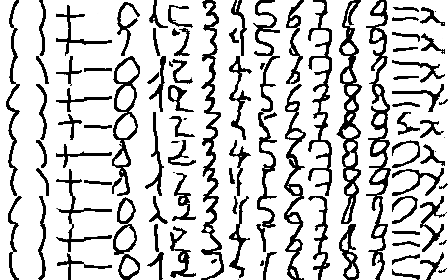 ( ) + - 0 1 2 3 4 5 6 7 8 9 = x
( ) + - 9 1 2 3 4 5 6 7 8 9 = x
( ) + - 0 1 2 3 4 5 6 7 8 9 = x
( ) + - 0 1 2 3 4 5 6 7 8 8 = y
( ) + - 0 1 2 3 4 5 6 7 8 9 5 x
( ) + - 8 1 2 3 4 5 6 7 8 9 0 x
( ) + - 9 1 7 3 4 5 6 7 8 9 0 y
( ) + - 0 1 2 3 1 5 6 7 8 9 0 x
( ) + - 0 1 2 3 4 5 6 7 8 9 = y
( ) + - 0 1 2 3 4 5 6 7 8 9 = x